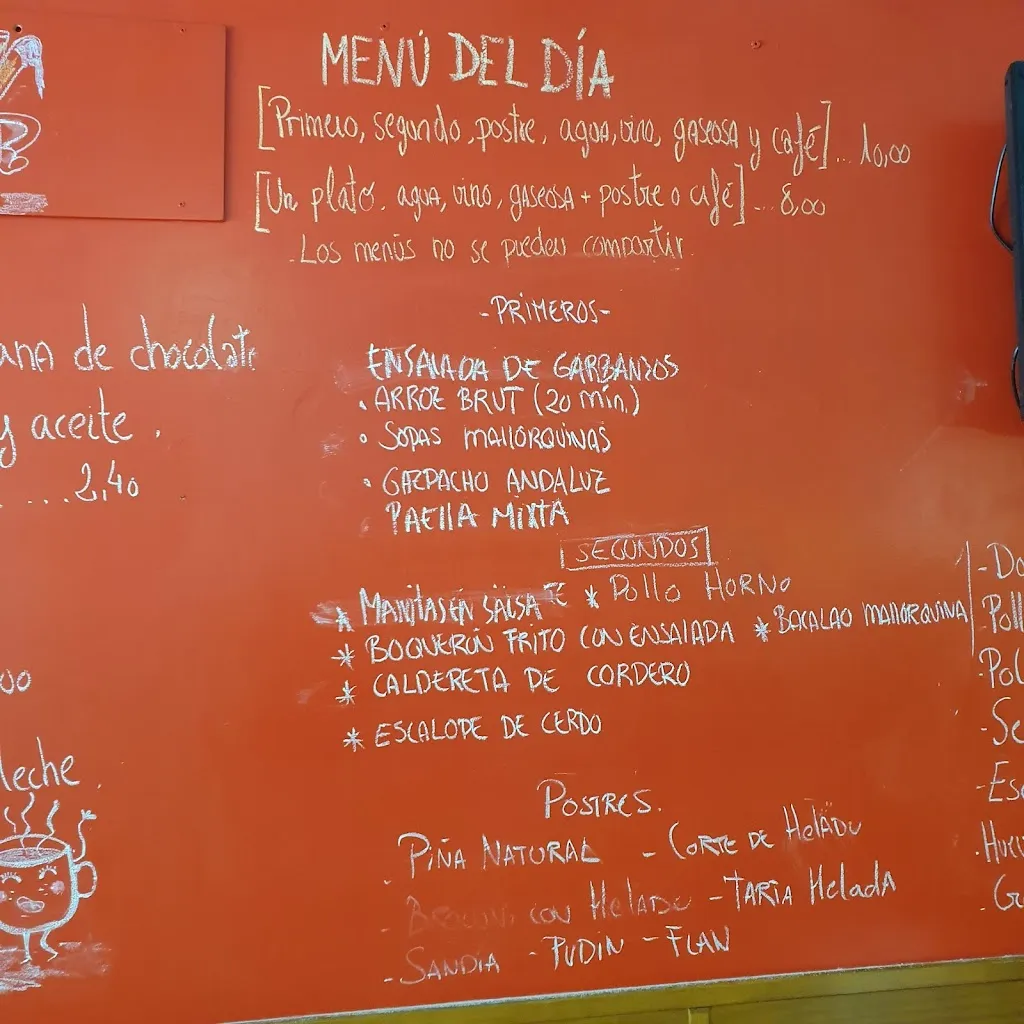 MENÚ DEL DÍA
[Primero, segundo, postre, agua, vino, gaseosa y café]... 10,00
[Un plato, agua, vino, gaseosa + postre o café]... 8,00
- Los menús no se pueden compartir.
-PRIMEROS-
ENSALADA DE GARBANZOS
• ARROZ BRUT (20 min.)
• SOPAS MALLORQUINAS
• GAZPACHO ANDALUZ
PAELLA MIXTA
SEGUNDOS
* MANITAS EN SALSA * POLLO HORNO
* BOQUERÓN FRITO CON ENSALADA * BACALAO MALLORQUINA
* CALDERETA DE CORDERO
* ESCALOPE DE CERDO
POSTRES.
- PIÑA NATURAL - CORTE DE HELADO
- BROWNI CON HELADO - TARTA HELADA
- SANDÍA - PUDIN - FLAN
de chocolate
y aceite.
....2,40
leche.